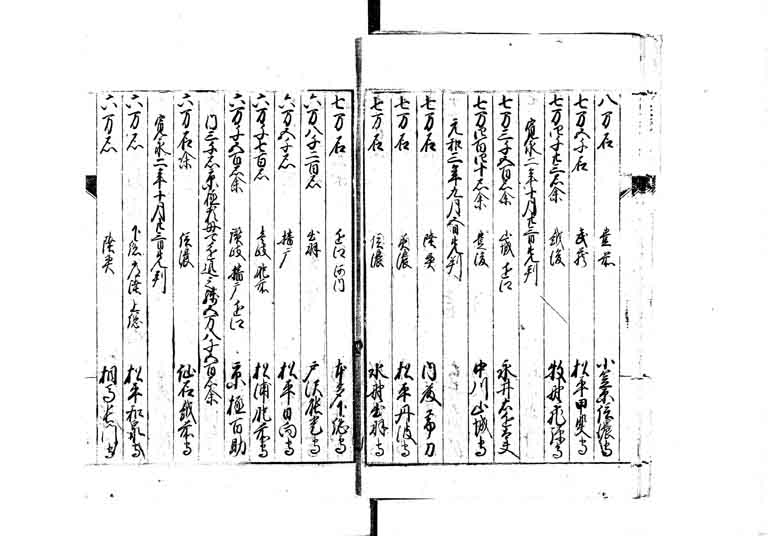 八万石 豊前 小笠原信濃守
七万五千石 武蔵 松平甲斐守
七万四千廿三石余 越後 牧野飛騨守
寛永二年十月廿三日先判
七万三千五百石余 山城 近江 永井
七万四百四十石余 豊後 中川山城守
元和三年九月五日先判
七万石 陸奥 内藤帯刀
七万石 美濃 松平丹波守
七万石 信濃 水野出羽守
七万石 近江 河内 本多下総守
六万八千二百石 出羽 戸沢能登守
六万五千石 播磨 松平日向守
六万千七百石 壱岐 肥前 松浦肥前守
六万千五百石余 讃岐 播磨 近江 京極百助
内三千石京極
六万石余 信濃 仙石越前守
寛永二年十月廿三日先判
六万石 下総 常陸 上総 松平和泉守
六万石 陸奥 相馬長門守